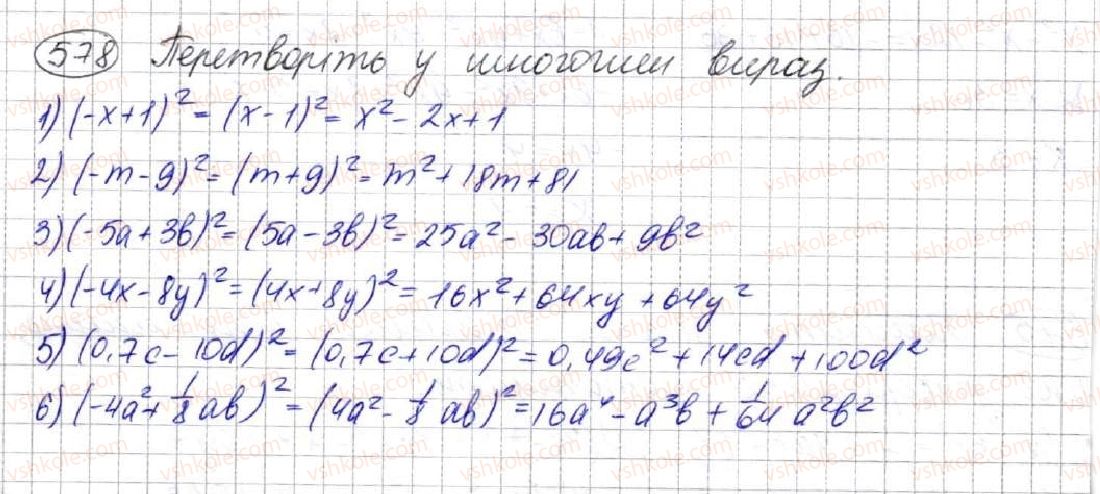 578 Перетворіть у многочлен вираз.
1) (-x+1)² = (x-1)² = x² - 2x+1
2) (-m-9)² = (m+9)² = m² + 18m+81
3) (-5a+3b)² = (5a-3b)² = 25a² - 30ab + 9b²
4) (-4x-8y)² = (4x+8y)² = 16x² + 64xy + 64y²
5) (0,7c - 10d)² = (0,7c+10d)² = 0,49c² + 14cd + 100d²
6) (-4a² + 1/8 ab)² = (4a² - 1/8 ab)² = 16a⁴ - a³b + 1/64 a²b²
vshkole.com